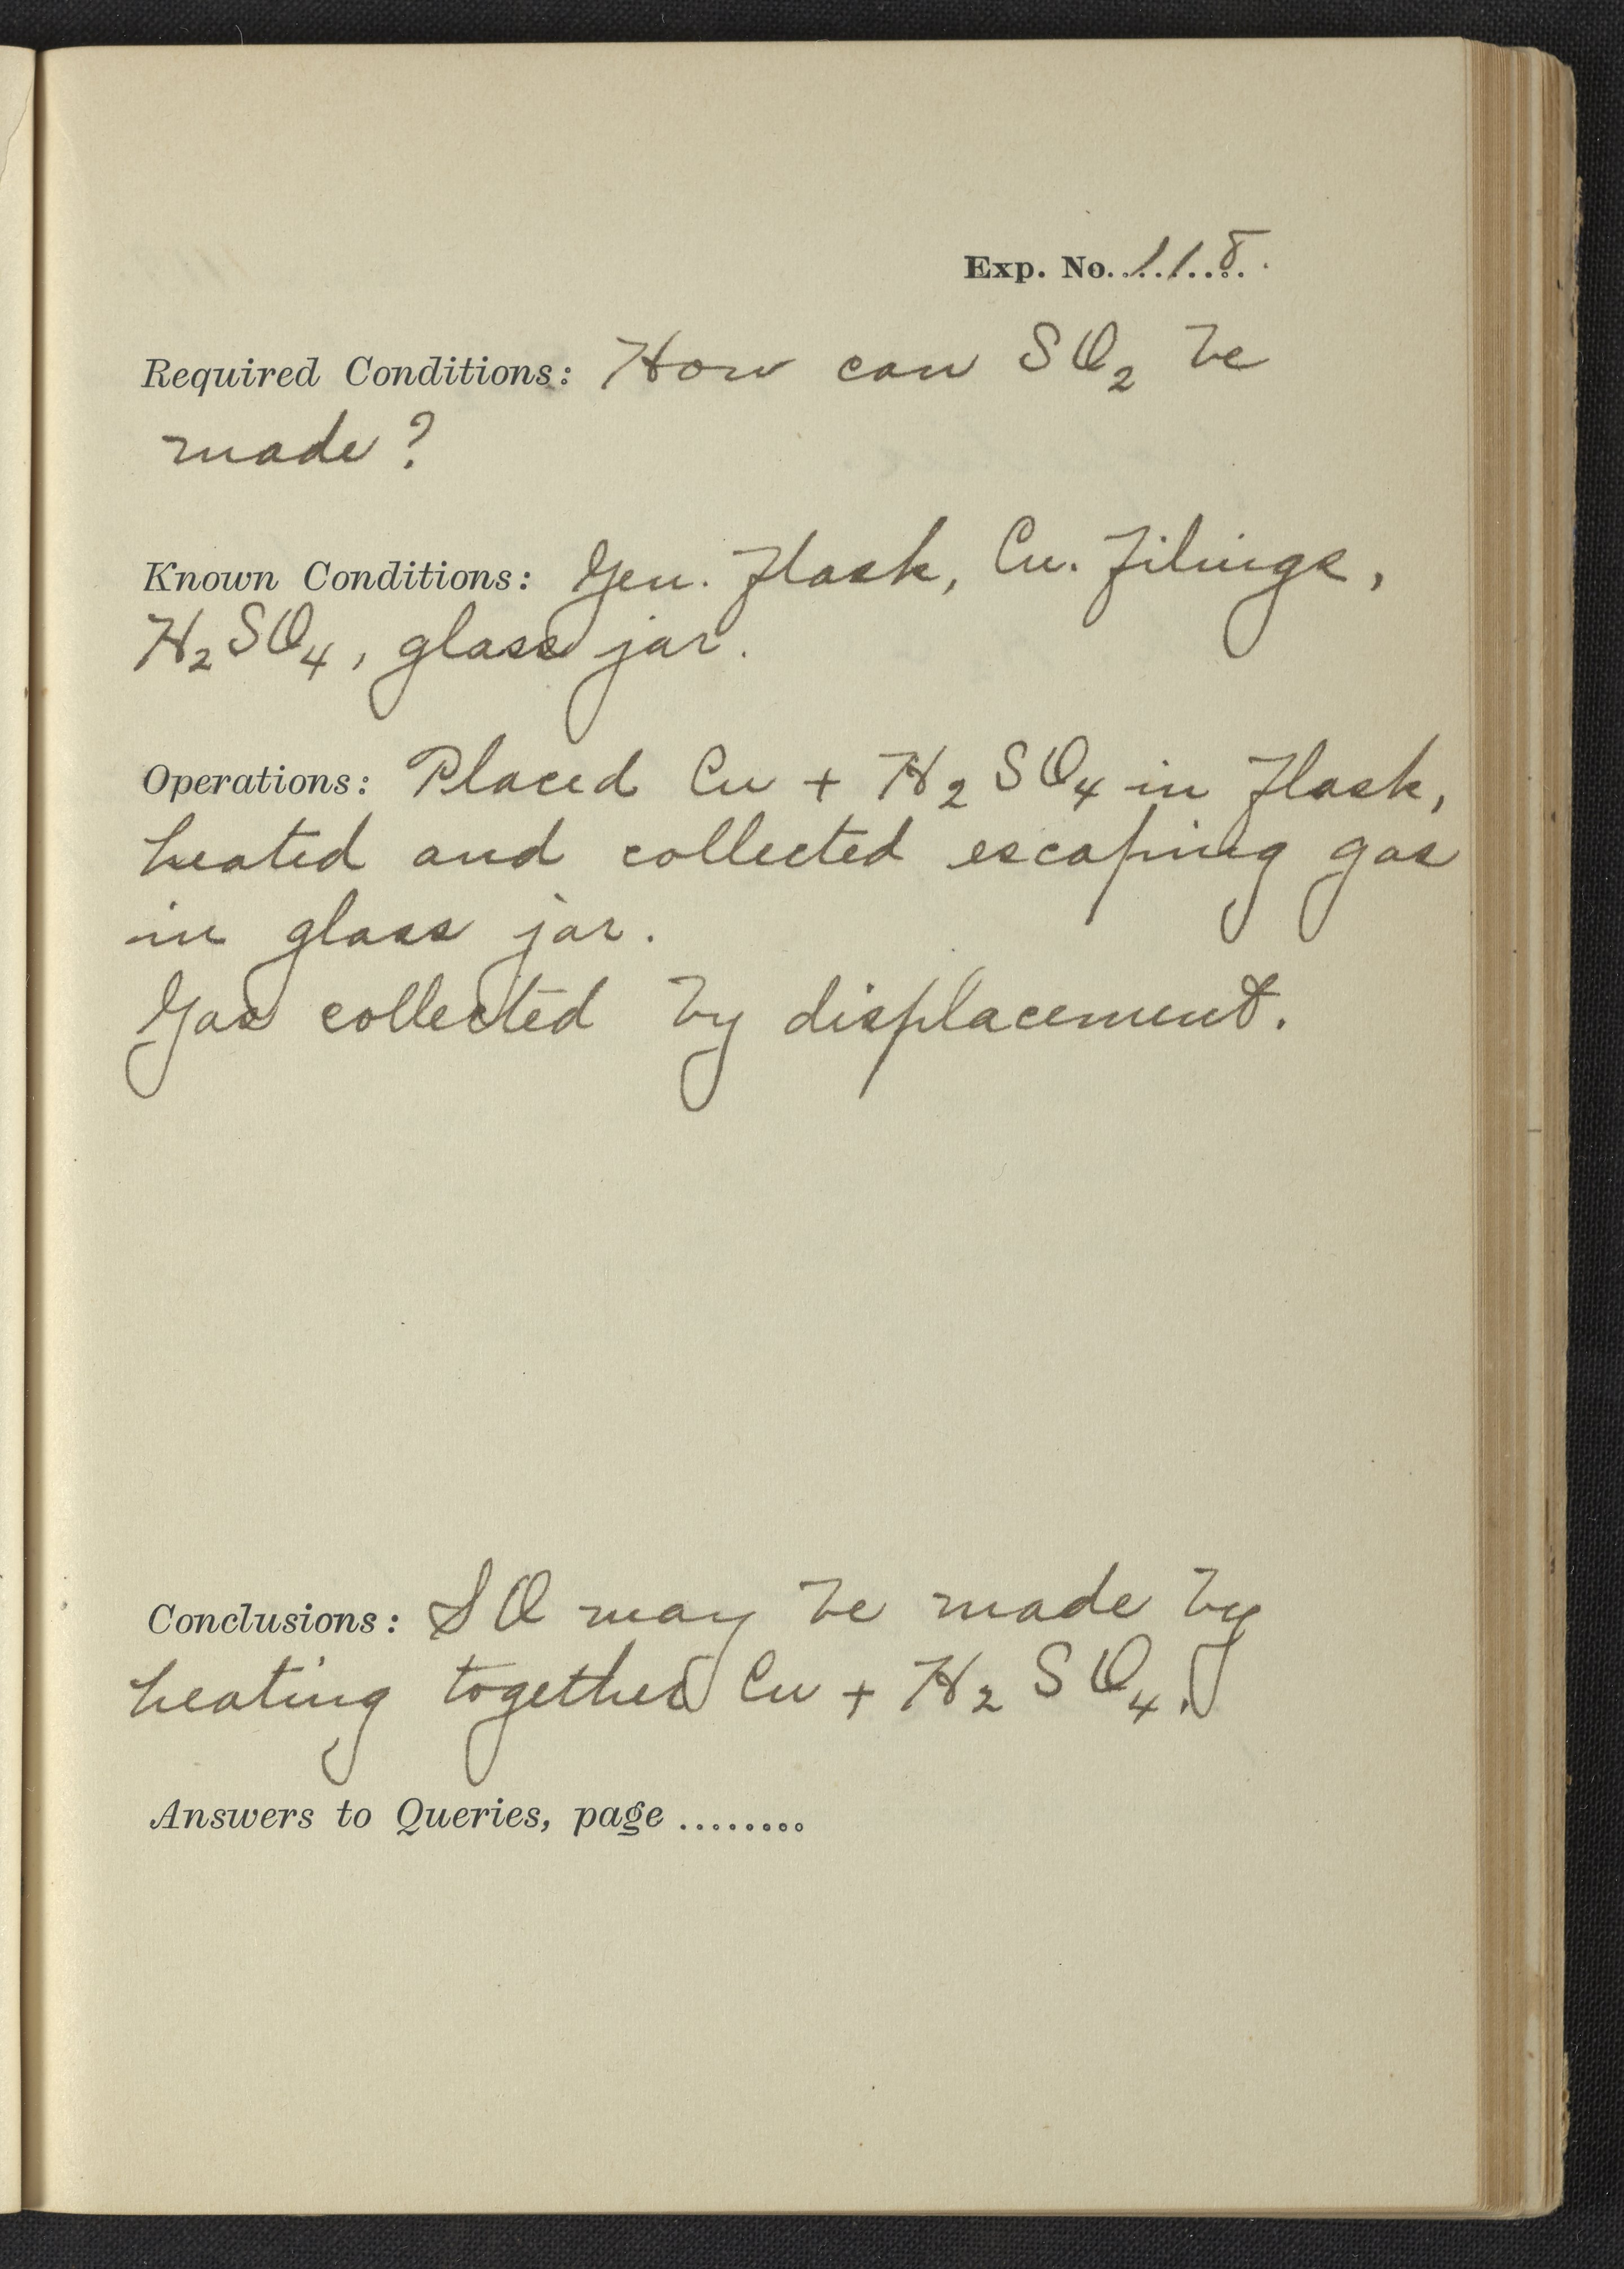 Exp. No. 118.
Required Conditions: How can SO₂ be
made?
Known Conditions: Gen. flask, Cu. filings,
H₂SO₄, glass jar.
Operations: Placed Cu + H₂SO₄ in flask,
heated and collected escaping gas
in glass jar.
Gas collected by displacement.
Conclusions: SO may be made by
heating together Cu + H₂SO₄.
Answers to Queries, page ........